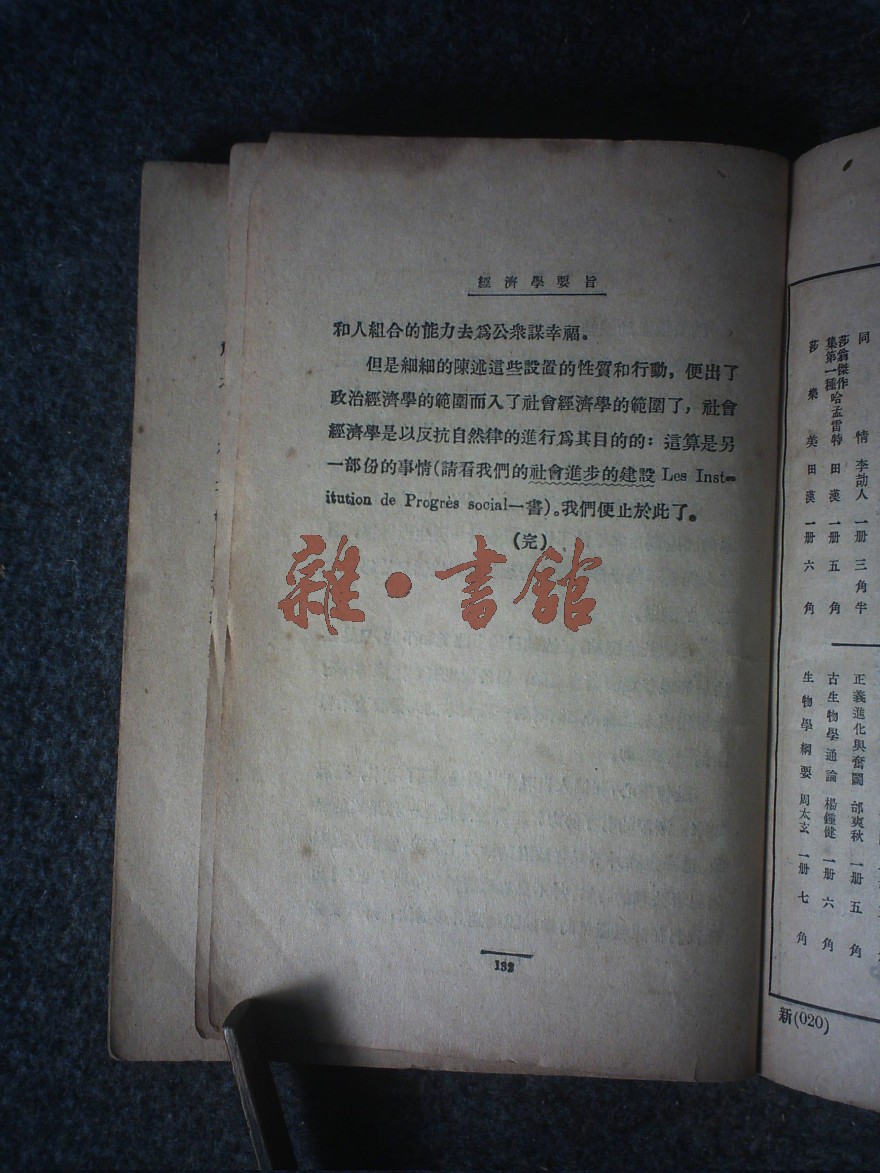 經濟學要旨
和人組合的能力去爲公衆謀幸福。
但是細細的陳述這些設置的性質和行動，便出了
政治經濟學的範圍而入了社會經濟學的範圍了，社會
經濟學是以反抗自然律的進行爲其目的的：這算是另
一部份的事情(請看我們的社會進步的建設 Les Inst-
itution de Progrès social一書)。我們便止於此了。
(完)
雜·書館
132
同情 李劼人 一册 三角半
莎翁傑作集第一種 哈孟雷特 田漢 一册 五角
莎樂美 田漢 一册 六角
正義進化與奮鬬 邰爽秋 一册 五角
古生物學通論 楊鍾健 一册 六角
生物學綱要 周太玄 一册 七角
新(020)